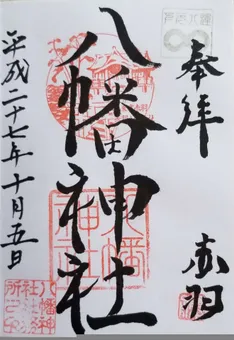 奉拝
赤羽
八幡神社
平成二十七年十月五日
八幡
神社
八幡神
社社務
所之印